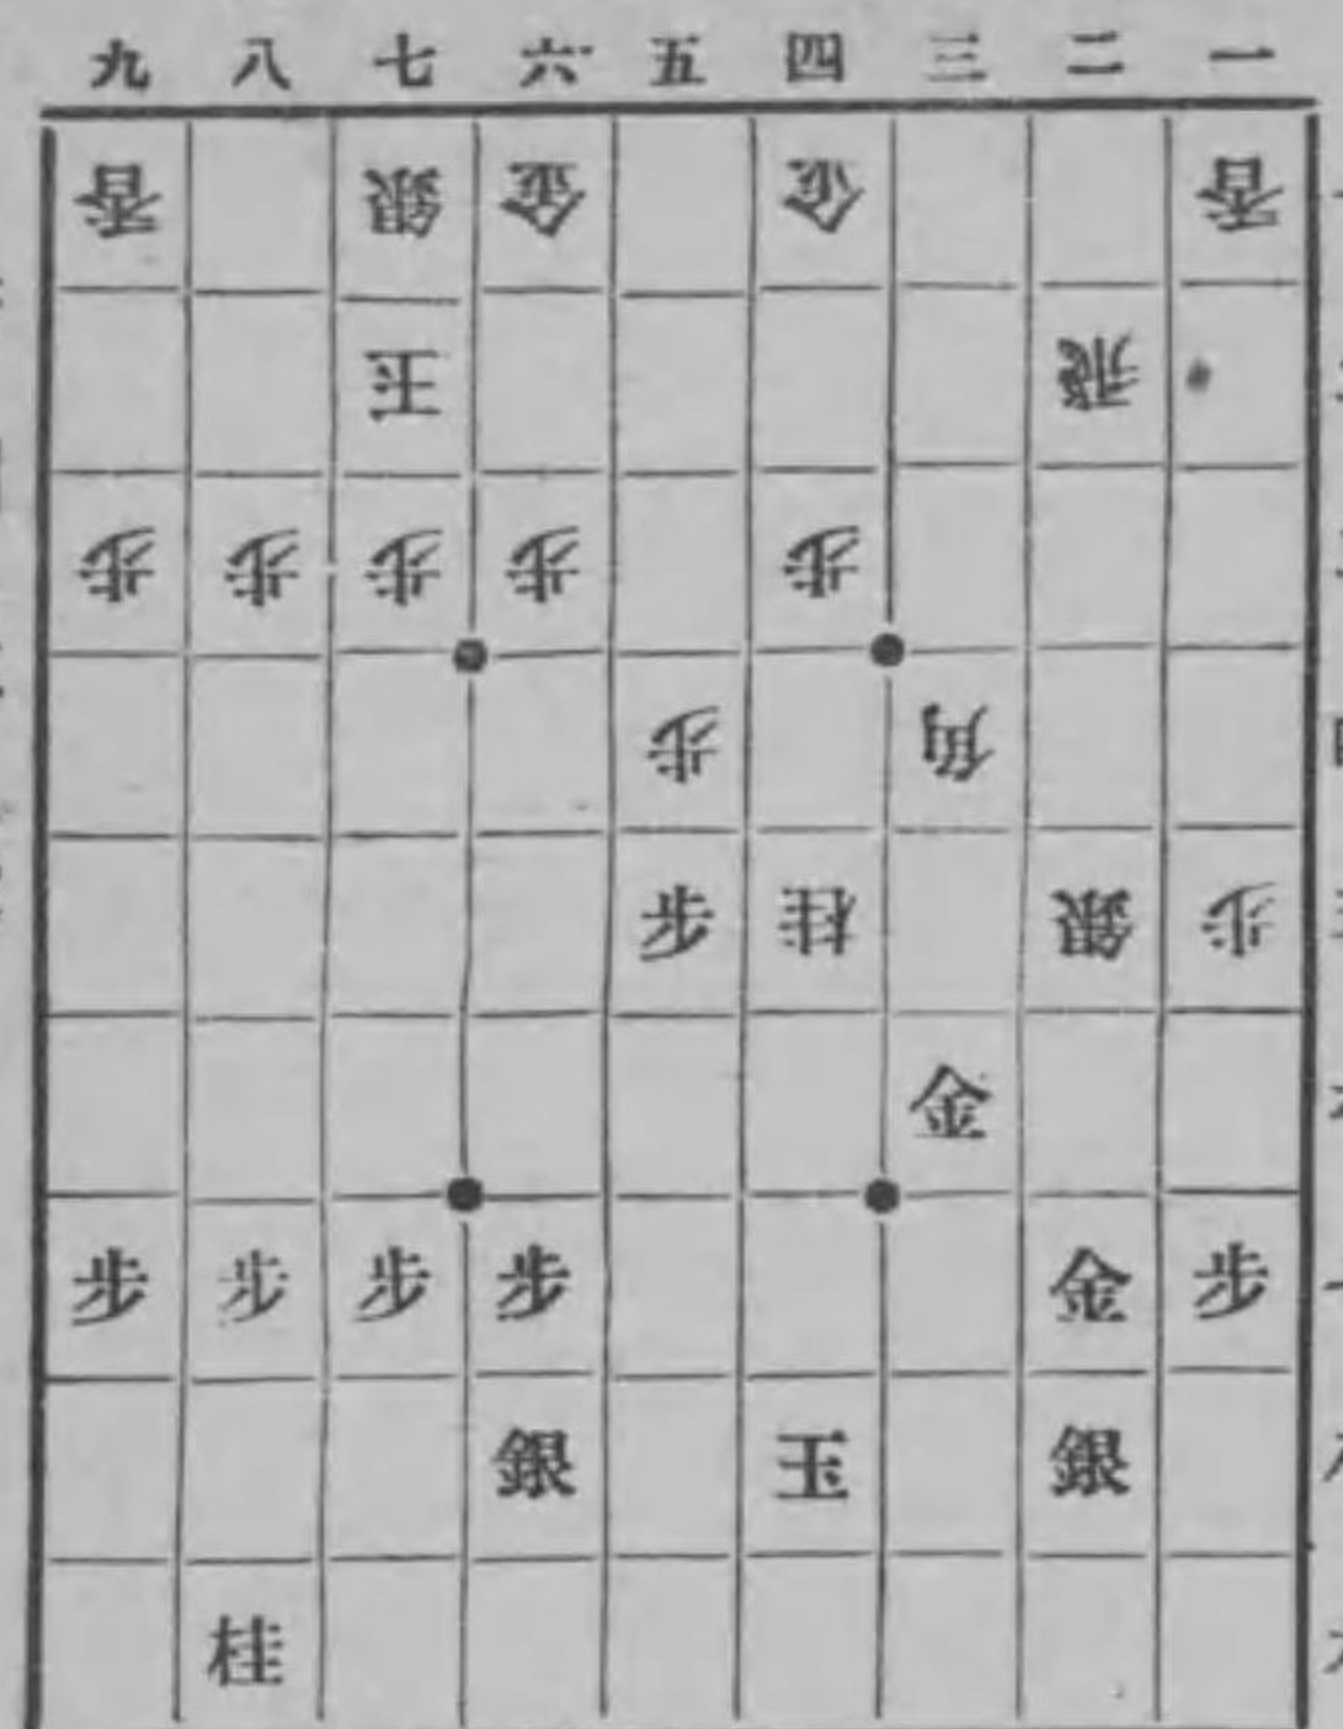 九 八 七 六 五 四 三 二 一
香 銀 金 金 香
王 飛
歩 歩 歩 歩 歩
歩 角
歩 桂 銀 歩
金
歩 歩 歩 歩 金 歩
銀 玉 銀
桂